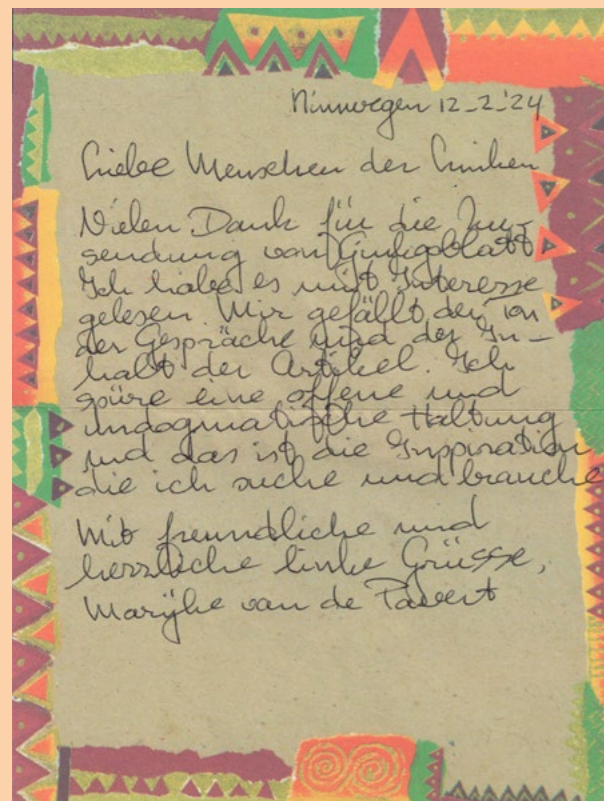 Nimwegen 12-2-'24
Liebe Menschen der Linken
Vielen Dank für die Zu-
sendung von Ginkgoblatt
Ich habe es mit Interesse
gelesen. Mir gefällt der Ton
der Gespräche und der In-
halt der Artikel. Ich
spüre eine offene und
undogmatische Haltung
und das ist die Inspiration
die ich suche und brauche
Mit freundliche und
herzliche linke Grüsse,
Marijke van de Pavert